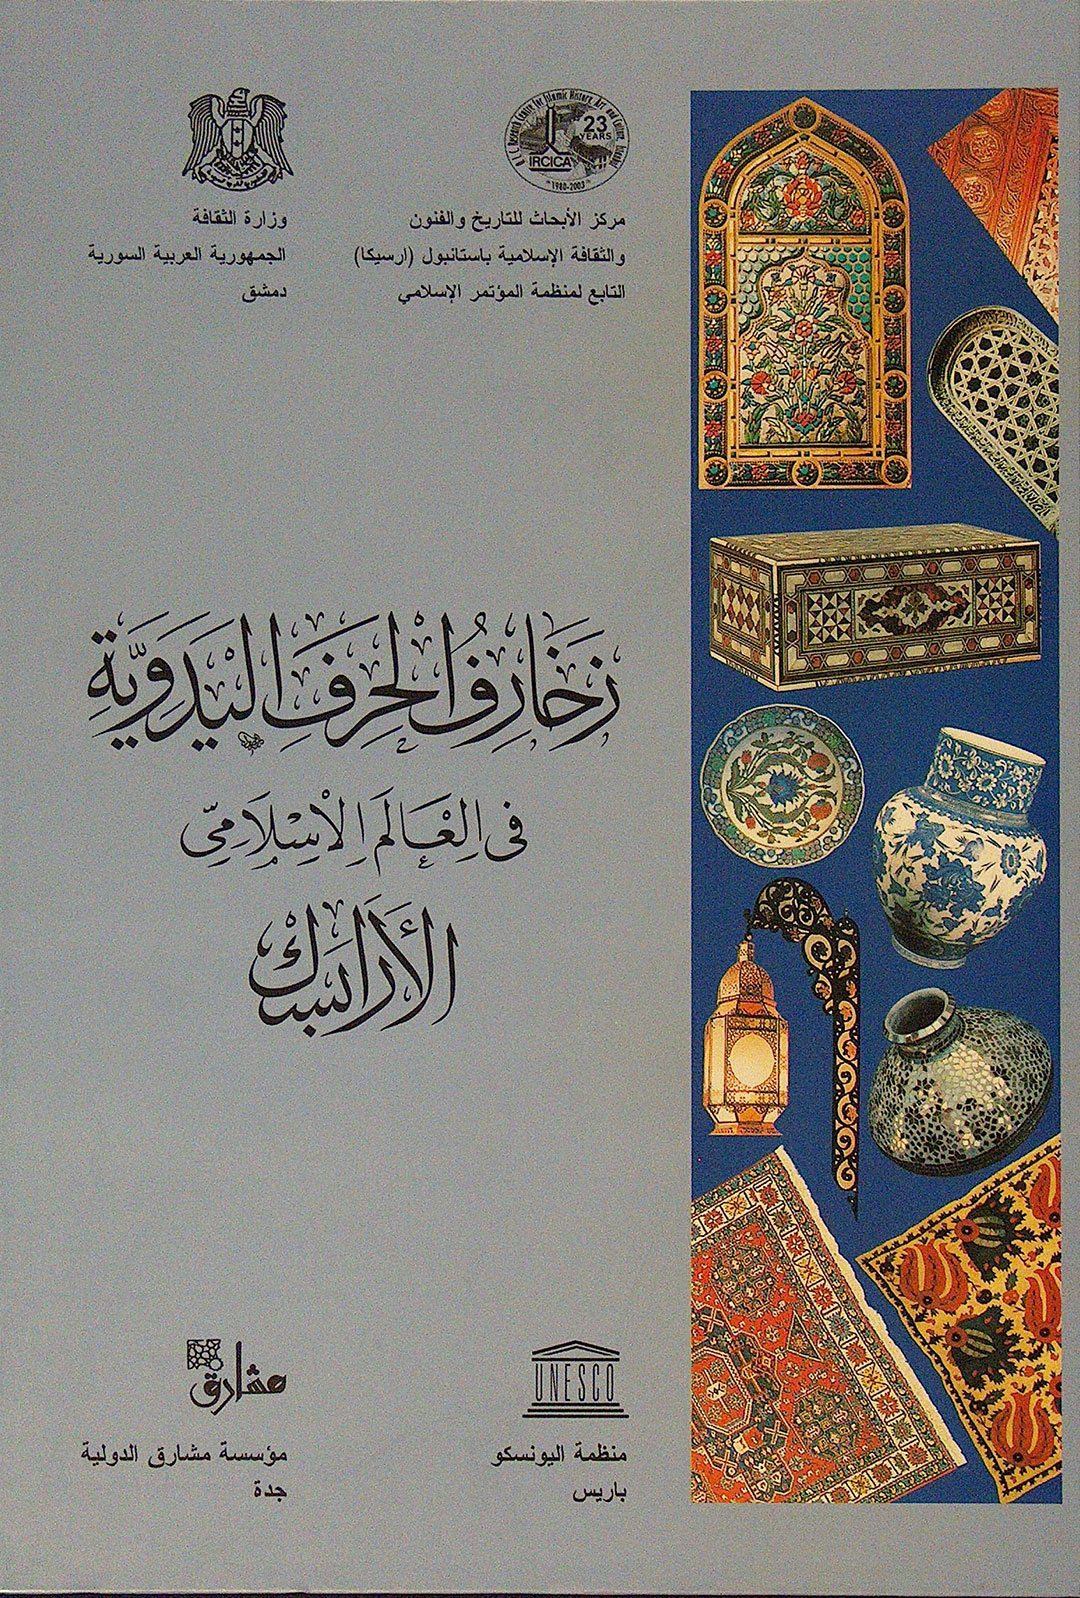 O.I.C. Research Centre for Islamic History, Art and Culture, Istanbul
23
YEARS
IRCICA
1980-2003
مركز الأبحاث للتاريخ والفنون
والثقافة الإسلامية باستانبول (ارسيكا)
التابع لمنظمة المؤتمر الإسلامي
وزارة الثقافة
الجمهورية العربية السورية
دمشق
زَخَارِفُ الْحِرَفِ الْيَدَوِيَّةِ
فى العَالَمِ الْاِسْلَامِىّ
الأَرَابَسْك
UNESCO
منظمة اليونسكو
باريس
مشارق
مؤسسة مشارق الدولية
جدة